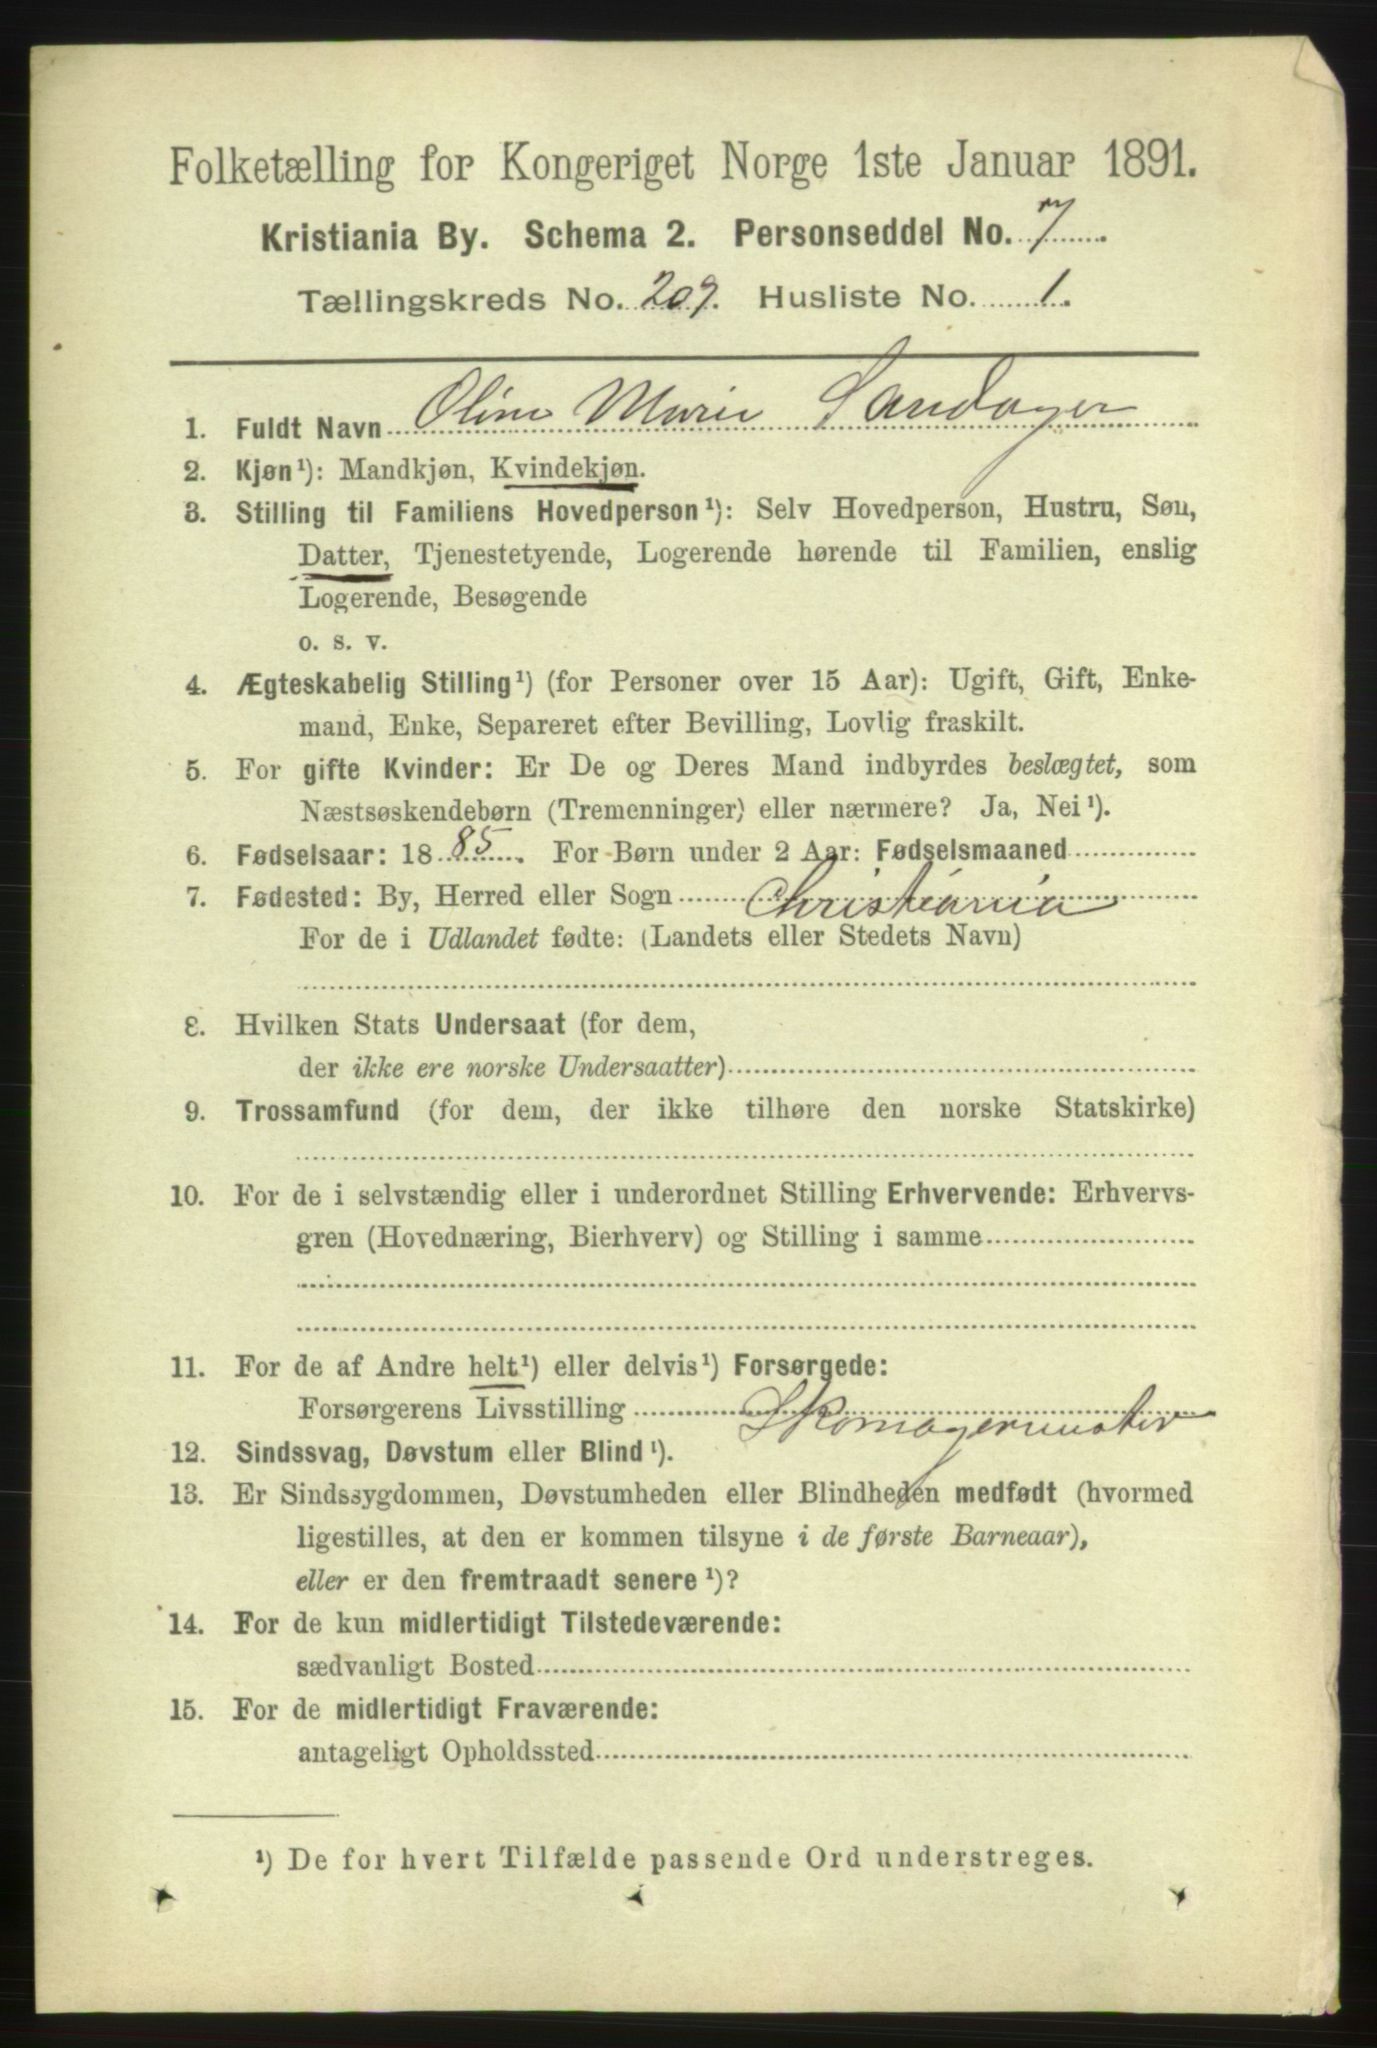 Folketælling for Kongeriget Norge 1ste Januar 1891.
Kristiania By. Schema 2. Personseddel No. 7
Tællingskreds No. 209. Husliste No. 1.
1. Fuldt Navn Oline Marie Sandager
2. Kjøn¹): Mandkjøn, Kvindekjøn.
3. Stilling til Familiens Hovedperson¹): Selv Hovedperson, Hustru, Søn,
Datter, Tjenestetyende, Logerende hørende til Familien, enslig
Logerende, Besøgende
o. s. v.
4. Ægteskabelig Stilling¹) (for Personer over 15 Aar): Ugift, Gift, Enke-
mand, Enke, Separeret efter Bevilling, Lovlig fraskilt.
5. For gifte Kvinder: Er De og Deres Mand indbyrdes beslægtet, som
Næstsøskendebørn (Tremenninger) eller nærmere? Ja, Nei¹).
6. Fødselsaar: 1885. For Børn under 2 Aar: Fødselsmaaned
7. Fødested: By, Herred eller Sogn Christiania
For de i Udlandet fødte: (Landets eller Stedets Navn)
8. Hvilken Stats Undersaat (for dem,
der ikke ere norske Undersaatter)
9. Trossamfund (for dem, der ikke tilhøre den norske Statskirke)
10. For de i selvstændig eller i underordnet Stilling Erhvervende: Erhvervs-
gren (Hovednæring, Bierhverv) og Stilling i samme
11. For de af Andre helt¹) eller delvis¹) Forsørgede:
Forsørgerens Livsstilling Skomagermester
12. Sindssvag, Døvstum eller Blind¹).
13. Er Sindssygdommen, Døvstumheden eller Blindheden medfødt (hvormed
ligestilles, at den er kommen tilsyne i de første Barneaar),
eller er den fremtraadt senere¹)?
14. For de kun midlertidigt Tilstedeværende:
sædvanligt Bosted
15. For de midlertidigt Fraværende:
antageligt Opholdssted
¹) De for hvert Tilfælde passende Ord understreges.